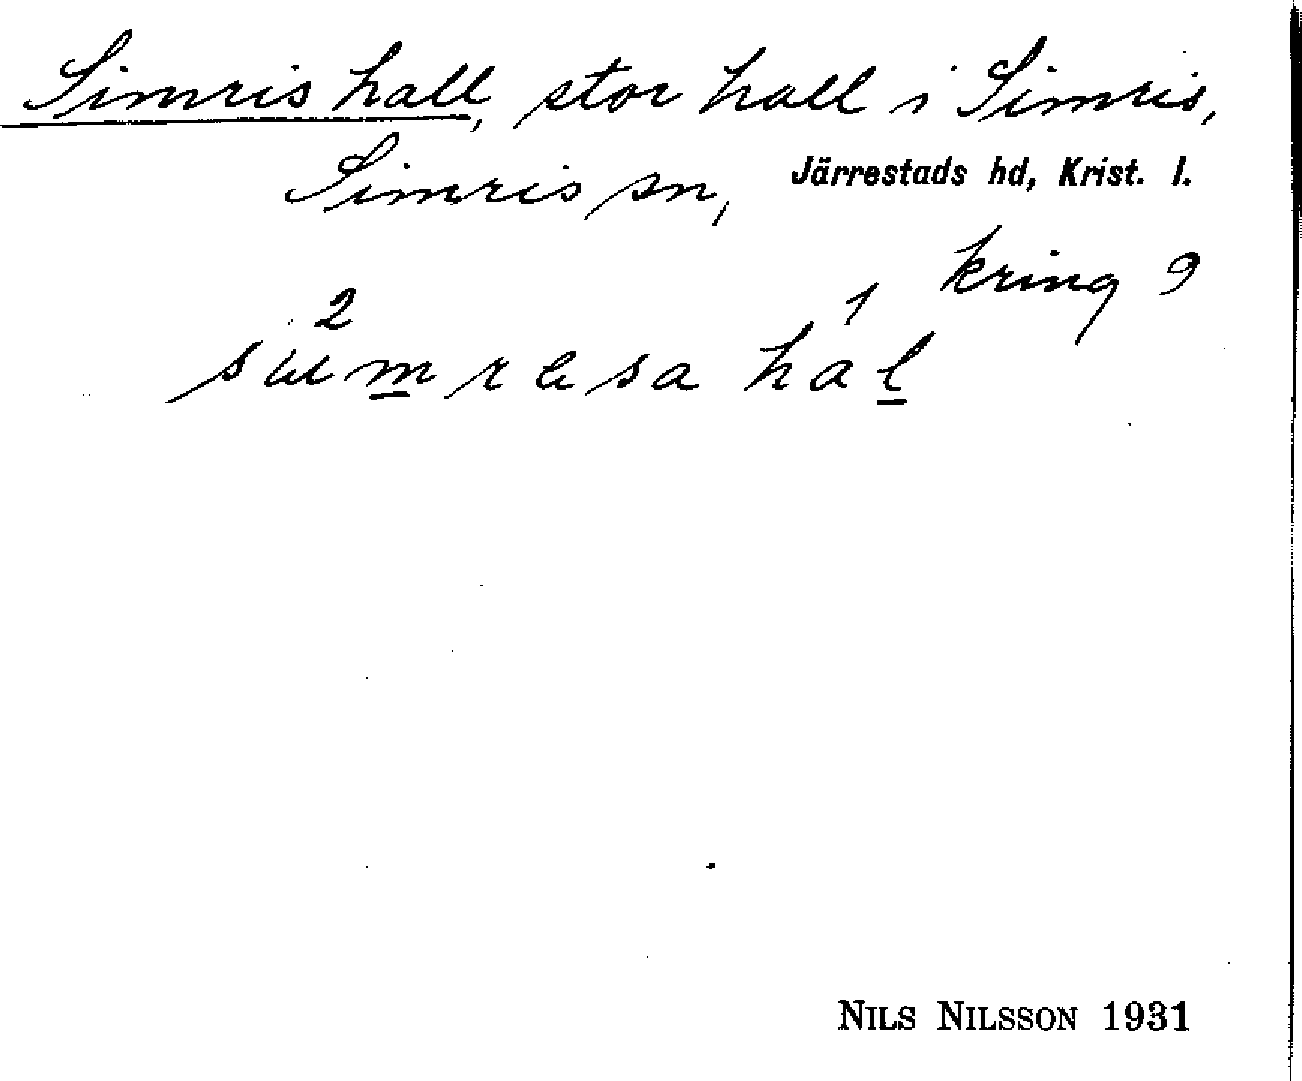 Simris hall, stor hall i Simris,
Simris sn, Järrestads hd, Krist. l.
kring 9
2 1
hal
NILS NILSSON 1931